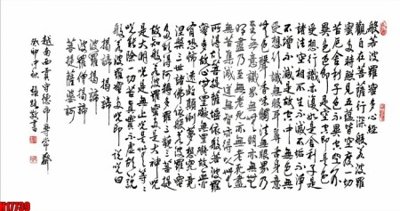 般若波羅蜜多心經
觀自在菩薩行深般若波羅
蜜多時照見五蘊皆空度一切
苦厄舍利子色不異空空不異
色色即是空空即是色
受想行識亦復如是舍利子是
諸法空相不生不滅不垢不淨
不增不減是故空中無色無
受想行識無眼耳鼻舌身意
無色聲香味觸法無眼界乃
至無意識界無無明亦無無
明盡乃至無老死亦無老死盡
無苦集滅道無智亦無得以無
所得故菩提薩埵依般若波羅
蜜多故心無罣礙無罣礙故無
有恐怖遠離顛倒夢想究竟
涅槃三世諸佛依般若波羅蜜
多故得阿耨多羅三藐三菩提
故知般若波羅蜜多是大神咒
是大明咒是無上咒是無等等
咒能除一切苦真實不虛故說
般若波羅蜜多咒即說咒曰
揭諦揭諦
波羅揭諦
波羅僧揭諦
菩提薩婆訶
越南西貢守德郡華嚴齋
癸卯中秋 敬書